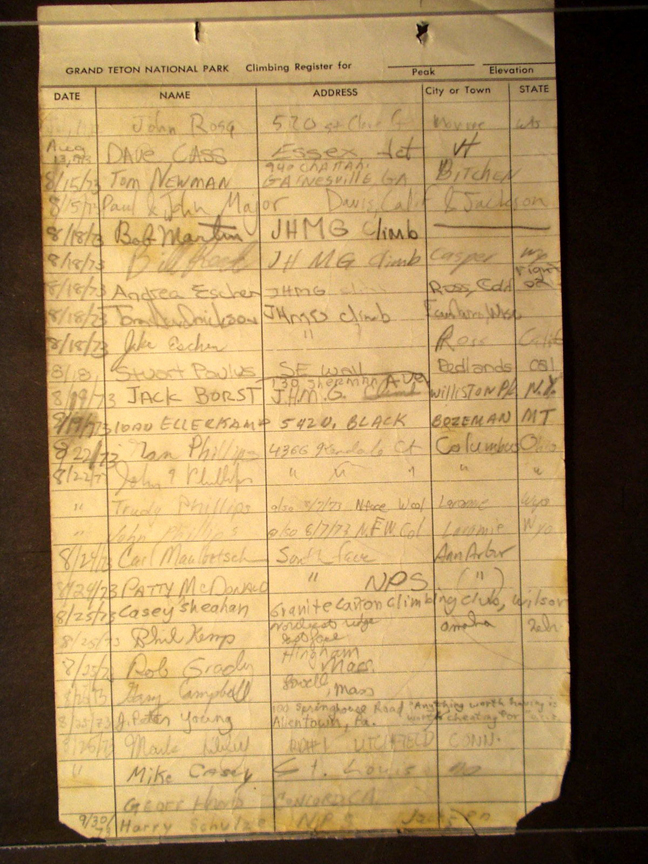 GRAND TETON NATIONAL PARK Climbing Register for
Peak Elevation
DATE NAME ADDRESS City or Town STATE
John Ross 520
Aug
DAVE CASS Essex Jct Vt
940 CHATTAH.
8/15/73 TOM NEWMAN GAINESVILLE, GA BITCHEN
8/15/73 Paul & John Major Davis, Calif & Jackson
8/18/73 Bob Martin JHMG Climb
8/18/73 Bill JH MG Climb Casper Wyo
8/18/73 Andrea Escher JHMG climb Ross, Calif
8/18/73 Tom Hendrickson JHMG climb
8/18/73 Jike Escher " " Ross Calif
8/18 Stuart Paulus SE wall Redlands Cal
139 Sherman Ave
8/19/73 JACK BORST J.H.M.G. Climb WILLISTON PK N.Y.
8/19/73 TODD ELLERKAMP 542 D. BLACK BOZEMAN MT
8/22/73 Phillips 4366 Kendale Ct Columbus Ohio
8/22/7 John Phillips " " " " "
" Trudy Phillips 8/7/73 Nface Laramie Wyo
" John Phillips 8/7/73 N.F W Col Laramie Wyo
8/24/73 Carl Maulbetsch South face Ann Arbor
8/24/73 PATTY McDONALD " NPS (")
8/25/73 Casey Sheahan Granite Canyon Climbing Club, Wilson
8/25/73 Phil Kemp Northeast ridge Omaha Nebr.
Hingham
8/25/73 Rob Grady Mass.
Gary Campbell Lowell, Mass
100 Springhouse Road "Anything worth having is
8/25/73 J. Peter Young Allentown, Pa. worth cheating for"
8/25/73 Mark LITCHFIELD CONN.
" Mike Casey St. Louis Mo
GEOFF CONCORD, CA.
9/30/73 Harry Schulze NPS Jackson